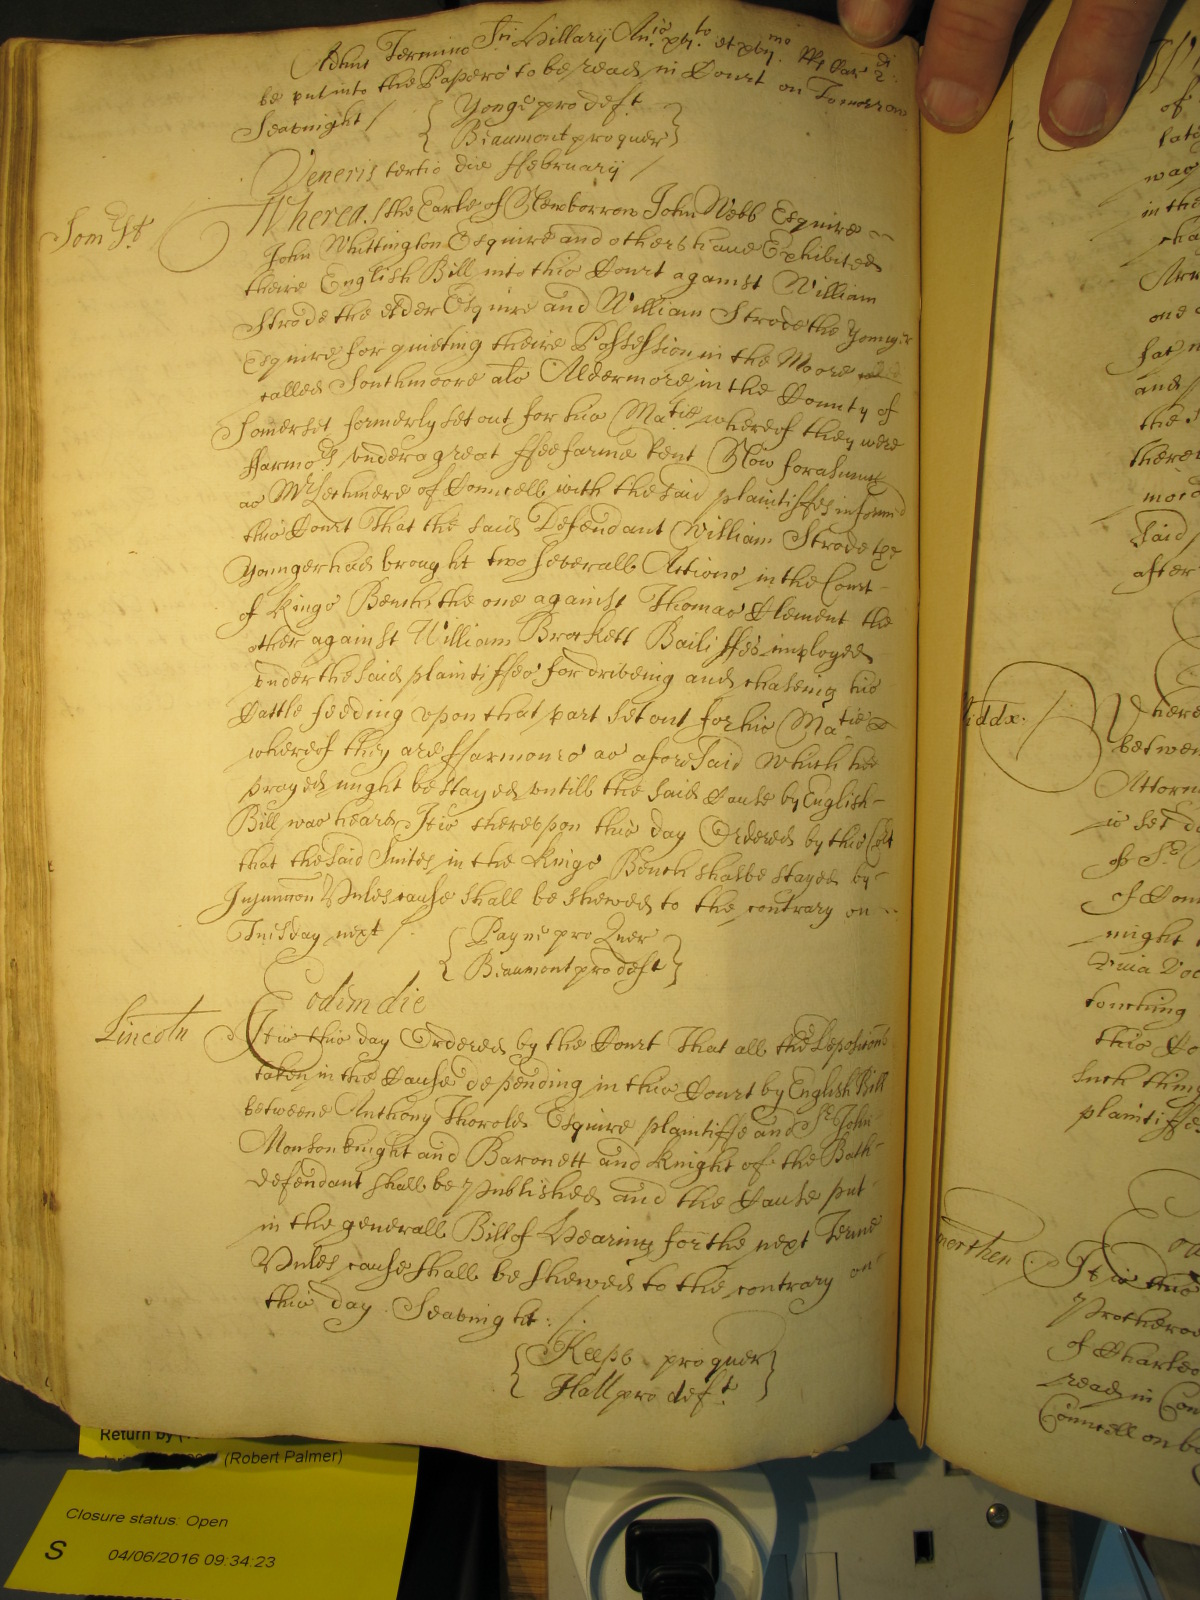 Adhuc Termino Sci Hillarij
be put into the Papers to be read in Court on Tomorrow
Seavnight /
Yonge pro deft
Beaumont pro quer
Veneris tertio die ffebruarij /
Somst
Whereas the Earle of Newborrow John Webb Esquire
John Whittington Esquire and others haue Exhibited
theire English Bill into this Court against William
Strode the elder Esquire and William Strode the Younger
Esquire for quieting theire Possession in the Moore
called Southmoore als Aldermore in the County of
Somerset formerly set out for his Matie whereof they were
ffarmors vnder a great ffee farme Rent Now forasmuch
as Mr Lechmere of Councell with the said plaintiffes informed
this Court That the said Defendant William Strode the
Younger had brought two severall Actions in the Court
of Kings Bench the one against Thomas Clement the
other against William Brockett Bailiffes imployed
vnder the said plaintiffes for driveing and chaseing his
Cattle feeding vpon that part set out for his Matie
whereof they are ffarmours as aforesaid Which hee
prayed might be stayed vntill the said Cause by English
Bill was heard It is therevpon this day Ordered by this Cort
that the said Suites in the Kings Bench shalbe stayed by
Iniunccon Vnles cause shall be shewed to the contrary on
Tuesday next /.
Payne pro Quer
Beaumont pro deft
Eodem die
Lincoln
It is this day Ordered by the Court That all the Depositions
taken in the Cause depending in this Court by English Bill
betweene Anthony Thorold Esquire plaintiffe and Sr John
Monson knight and Baronett and knight of the Bath
defendant shall be Published and the Cause put
in the generall Bill of Hearing for the next Terme
Vnles cause shall be shewed to the contrary on
this day Seavnight : /.
Keepe pro quer
Hall pro deft
iddx.
here
betwee
Attorn
is set d
might
touching
this Co
such thing
plaintiffe
the
there
said
after
and
in the
one
of
It is this
Prothero
of Charles
read in Cou
Councell on b
Return by
(Robert Palmer)
Closure status: Open
S
04/06/2016 09:34:23